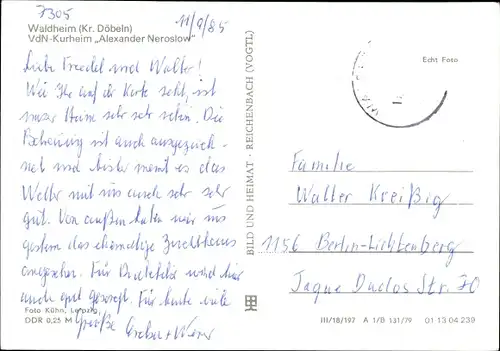 7305
11/9/85
Waldheim (Kr. Döbeln)
VdN-Kurheim „Alexander Neroslow"
Liebe Friedel und Walter!
Wie Ihr auf der Karte seht, ist
unser Heim sehr sehr schön. Die
Betreuung ist auch ausgezeich-
net und bisher meint es das
Wetter mit uns auch sehr sehr
gut. Von außen haben wir uns
gestern das ehemalige Zuchthaus
angesehen. Für wird hier
auch gut gesorgt. Für heute viele
Grüße + Werner
Foto Kühn, Leipzig
DDR 0,25 M
BILD UND HEIMAT · REICHENBACH (VOGTL)
Echt Foto
Familie
Walter Kreißig
1156 Berlin-Lichtenberg
Jaque Duclos Str. 70
III/18/197 A 1/B 131/79 01 13 04 239